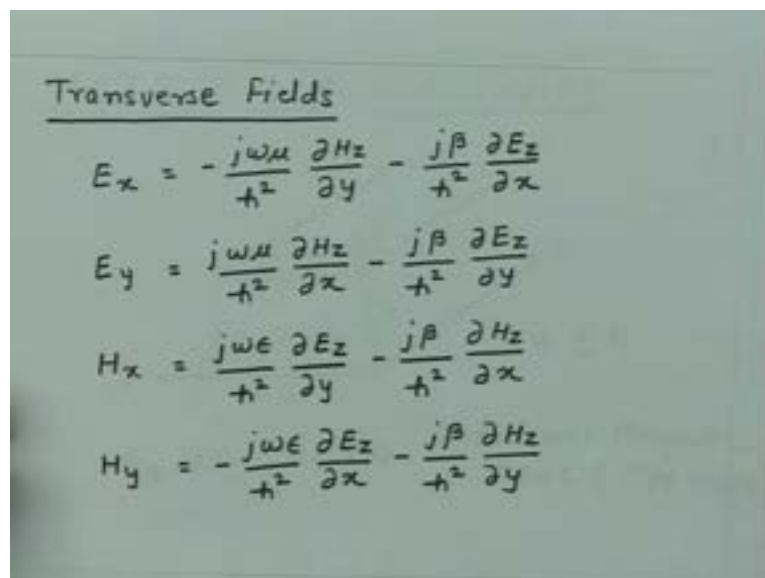 Transverse Fields
Ex = - jωμ/h² ∂Hz/∂y - jβ/h² ∂Ez/∂x
Ey = jωμ/h² ∂Hz/∂x - jβ/h² ∂Ez/∂y
Hx = jωϵ/h² ∂Ez/∂y - jβ/h² ∂Hz/∂x
Hy = - jωϵ/h² ∂Ez/∂x - jβ/h² ∂Hz/∂y